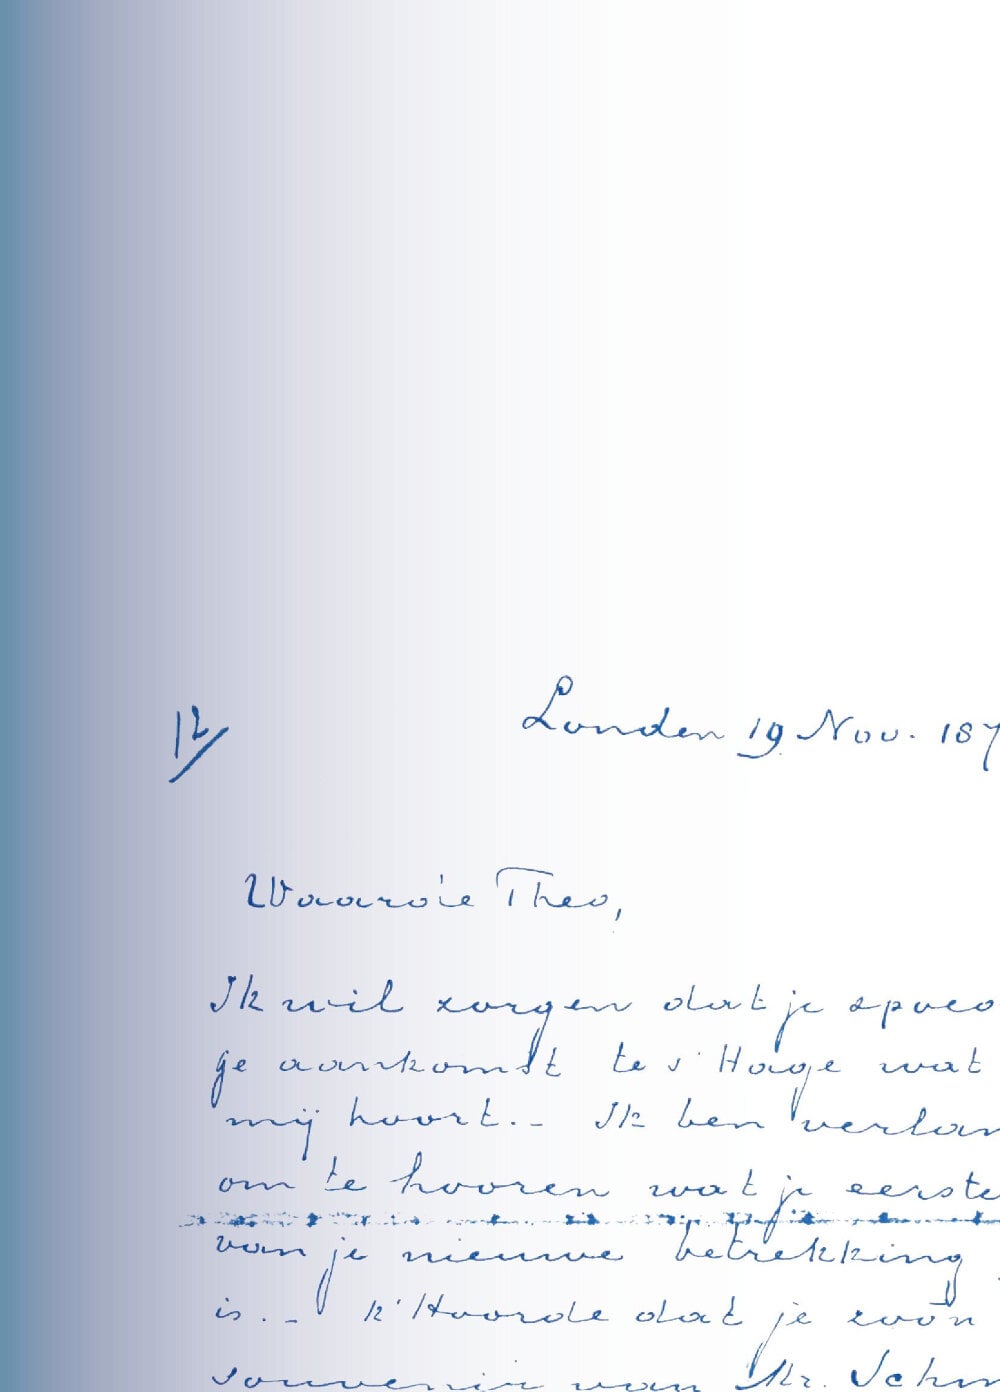 12/
Londen 19 Nov. 187
Waarde Theo,
Ik wil zorgen dat je spoe
ge aankomst te s'Hage wat
mij hoort.- Ik ben verlan
om te hooren wat je eerste
van je nieuwe betrekking
is.- k'Hoorde dat je zoo'n
souvenir van Mr. Schm